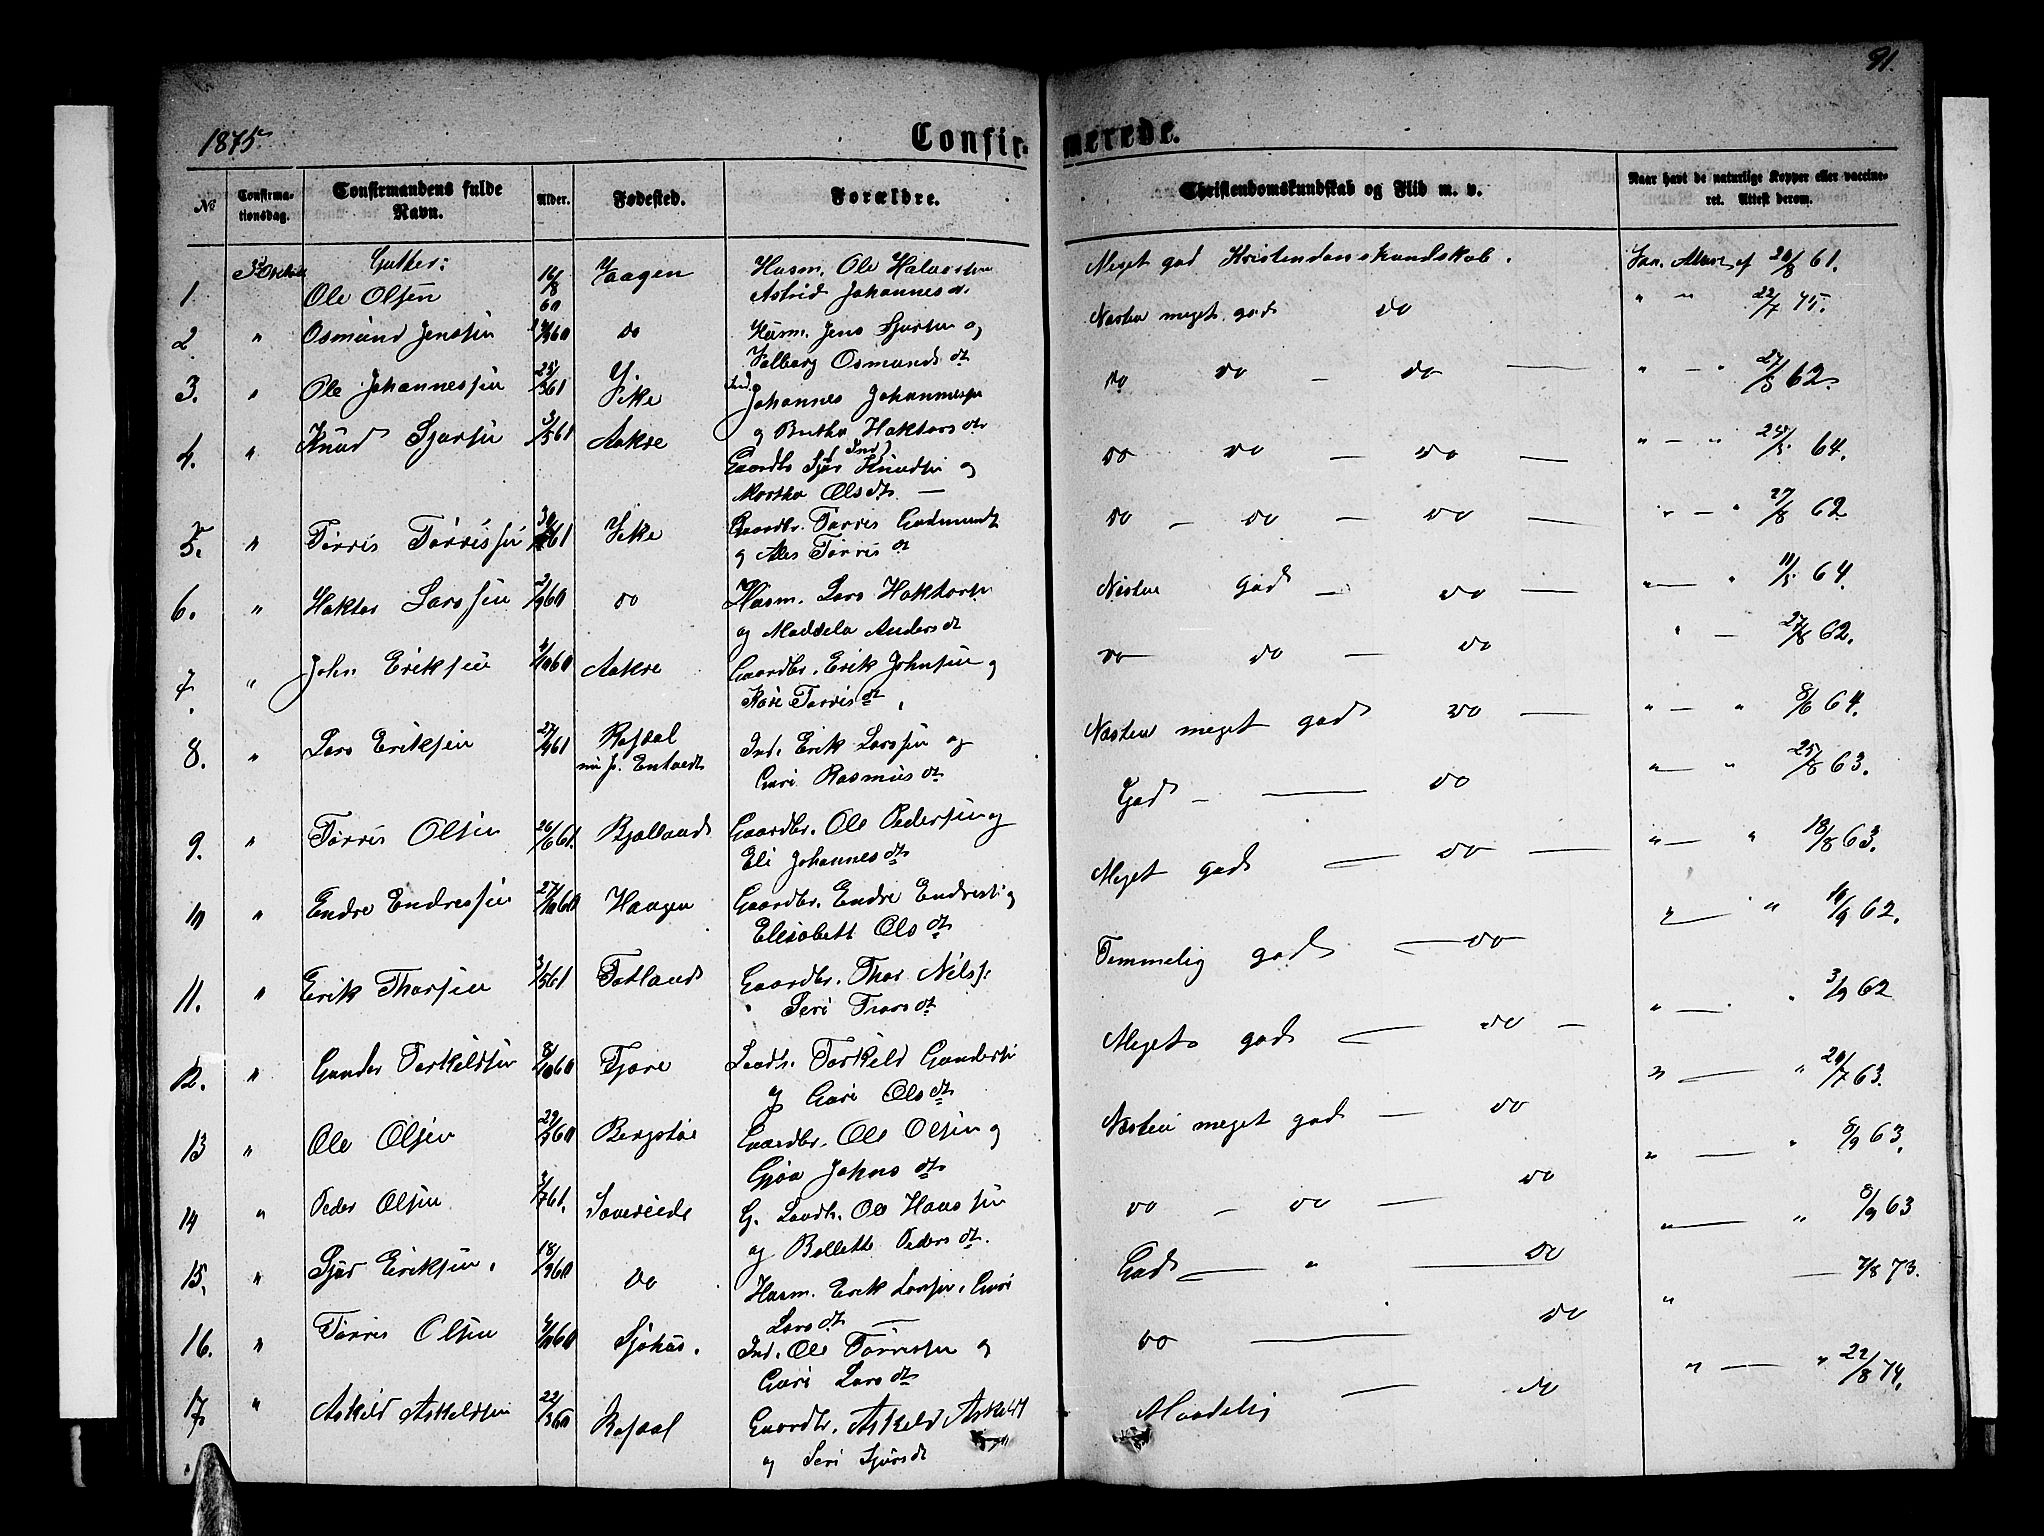 91.
1875.
Confir- merede.
№
Confirma-
tionsdag.
Confirmandens fulde
Navn.
Alder.
Fødested.
Forældre.
Christendomskundskab og Flid m. v.
Naar havt de naturlige Kopper eller vaccine-
ret. Attest derom.
Gutter:
1. Ole Olsen 16/8 60 Vaagen Husm. Ole
Astrid Johannesdt. Meget god Kristendomskundskab. 20/8 61.
2. " Osmund Jenssen 60 do Husm. Jens Sjursen og
Valborg Osmundsdt Næsten meget god do " " 22/7 75.
3. " Ole Johannessen 25/ 61 Vike Ind. Johannes Johannessen
og Britha Haktorsdt do do — do — " — " 27/5 62.
4. " Knud Sjursen 3/5 61 Aakre Gaardbr. Sjur Knudsen og
Martha Olsdt. — do do — do — " — " 64.
5. " Tørris Tørrissen 30/ 61 Vike Gaardbr. Tørris Gudmundt
og Ales Tørrisdt do — do — do — " — " 27/8 62
6. " Haktor Larssen 2/9 60 do Husm. Lars Haktorsen
og Madela Andersdt Næsten god — do — " — " 11/5 64.
7. " John Eriksen /10 60 Aakre Gaardbr. Erik Johnsen og
Kari Tørrisdt. do do — do " — 27/8 62.
8. " Lars Eriksen 27/4 61 Rafdal
Ind. Erik Larssen og
Guri Rasmusdt Næsten meget god do — " — " 8/6 64.
9. " Tørris Olsen 26/6 61. Bjelland Gaardbr. Ole Pedersen og
Eli Johannesdt God — — do " — " 25/8 63.
10 " Endre Endressen 27/10 60 Haagen Gaardbr. Endre Endress. og
Elisabeth Olsdt Meget god — do — " — " 18/8 63.
11. " Erik Thorsen 3/5 61 Totland Gaardbr. Thor Nilss.
Seri Torsdt Temmelig god — do " — " 10/9 62.
12. " Gunder Torkildsen 8/10 60 Fjære Leods. Torkild Gunderse
og Guri Olsdt Meget god — do — " — " 3/9 62
13 " Ole Olsen 29/5 60 Bergstøe Gaardbr. Ole Olsen og
Gjøa Johnsdt Næsten meget god — do " — " 20/7 63.
14 " Peder Olsen 3/7 61. Soureide G. Ole Hanssen
og Bollette Pedersdt. do — do — do " — " 8/9 63.
15. " Sjur Eriksen. 18/9 60 do Husm. Erik Larssen. Guri
Larsdt — God — " — do " — " 8/9 63
16. " Tørris Olsen /10 60 Sjohus. Ind. Ole Tørrissen og
Guri Larsdt do — do " — 7/8 73.
17. " Askild Askildsen 22/ 60 Rafdal Gaardbr. Askild Askildt
og Seri Sjursdt Maadelig — do " — " 22/8 74.